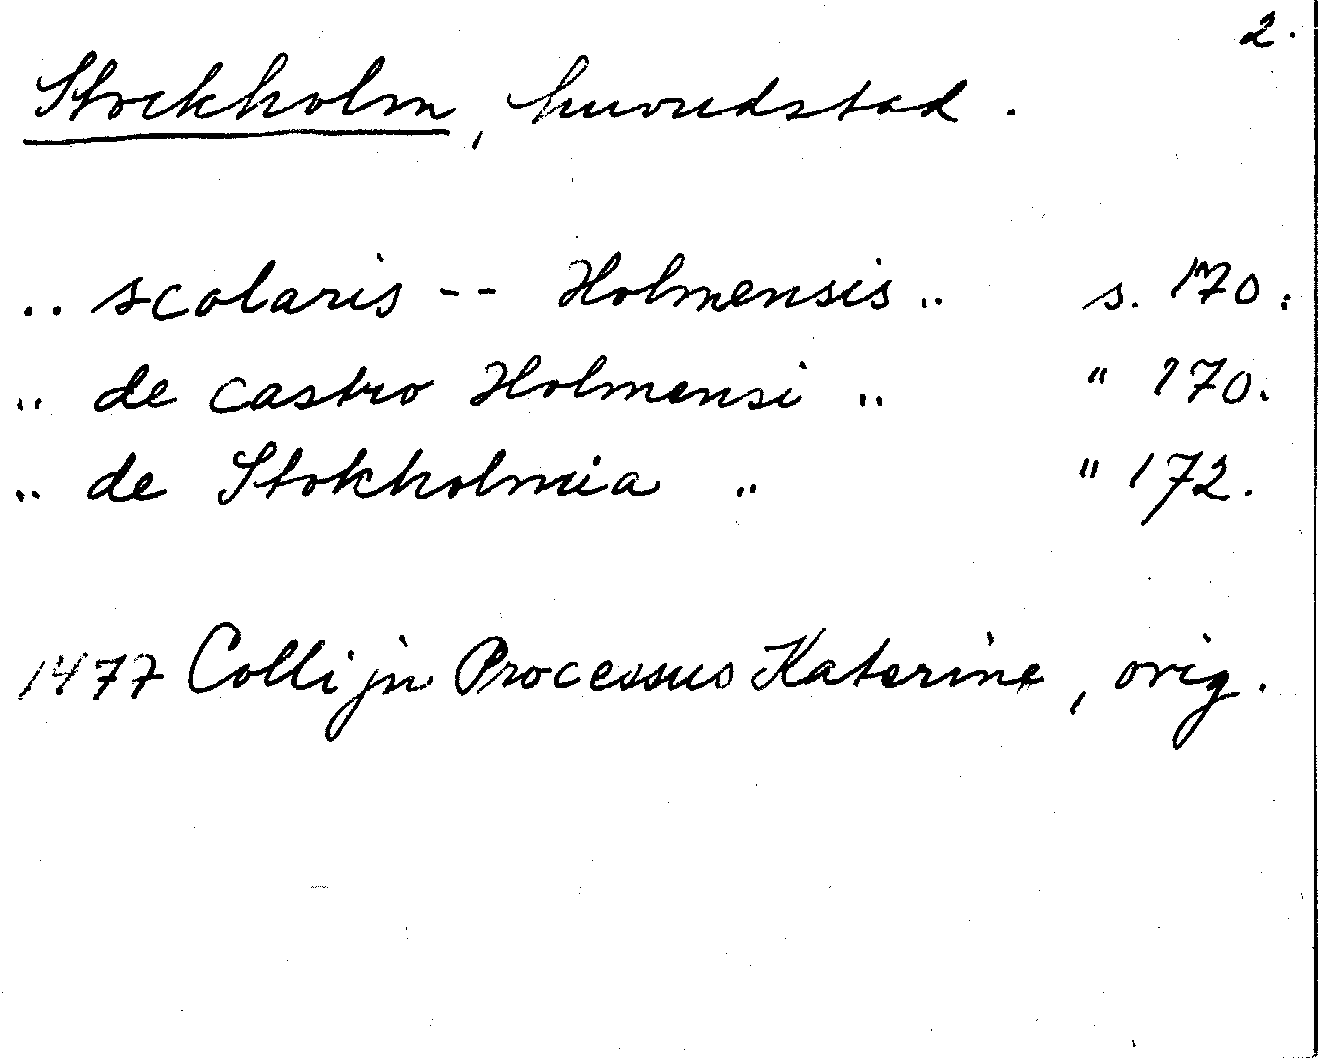 2.
Stockholm, huvudstad.
.. scolaris -- Holmensis .. s. 170.
.. de castro Holmensi .. " 170.
.. de Stokholmia .. " 172.
1477 Collijn Processus Katerine, orig.